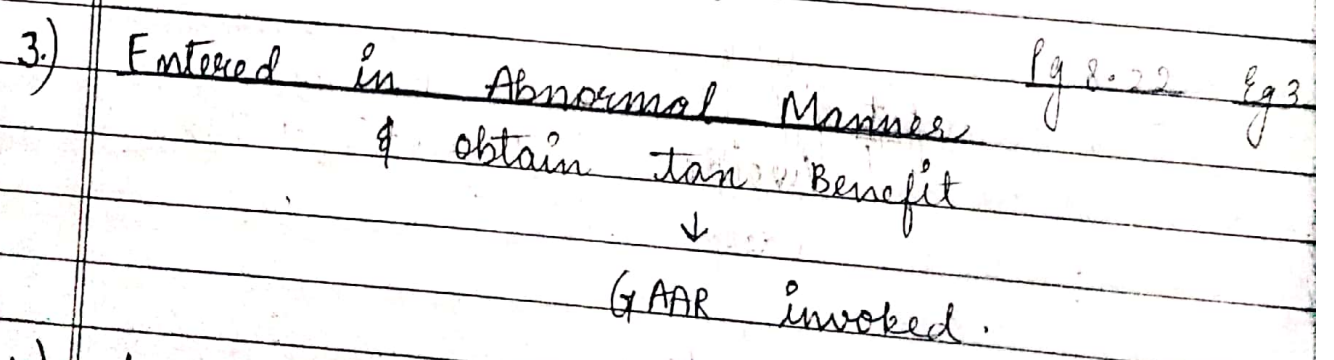 3.) Entered in Abnormal Manner Pg 8.22 Eg 3
& obtain tax Benefit
↓
GAAR invoked.